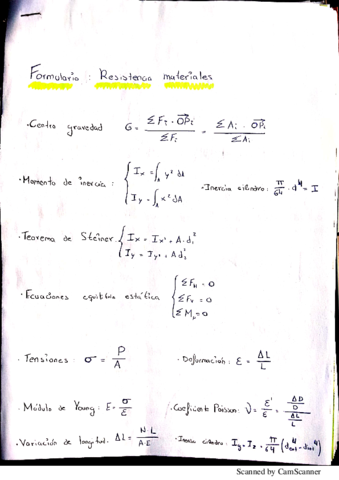 Formulario : Resistencia materiales
·Centro gravedad G = ΣFi · OPi / ΣFi = ΣAi · OPi / ΣAi
·Momento de inercia : { Ix = ∫A y² dA
Iy = ∫A x² dA
·Inercia cilindro: π/64 · d⁴ = I
·Teorema de Steiner { Ix = Ix' + A·d₁²
Iy = Iy' + Ad₁²
·Ecuaciones equilibrio estática { ΣFH = 0
ΣFV = 0
ΣMP = 0
·Tensiones: σ = P/A
·Deformación: ε = ΔL/L
·Módulo de Young: E = σ/ε
·Coeficiente Poisson: ν = ε'/ε = (ΔD/D)/(ΔL/L)
·Variación de longitud: ΔL = NL/AE
·Inercia cilindro: Iy = Iz = π/64 (d⁴ext - d⁴int)
Scanned by CamScanner